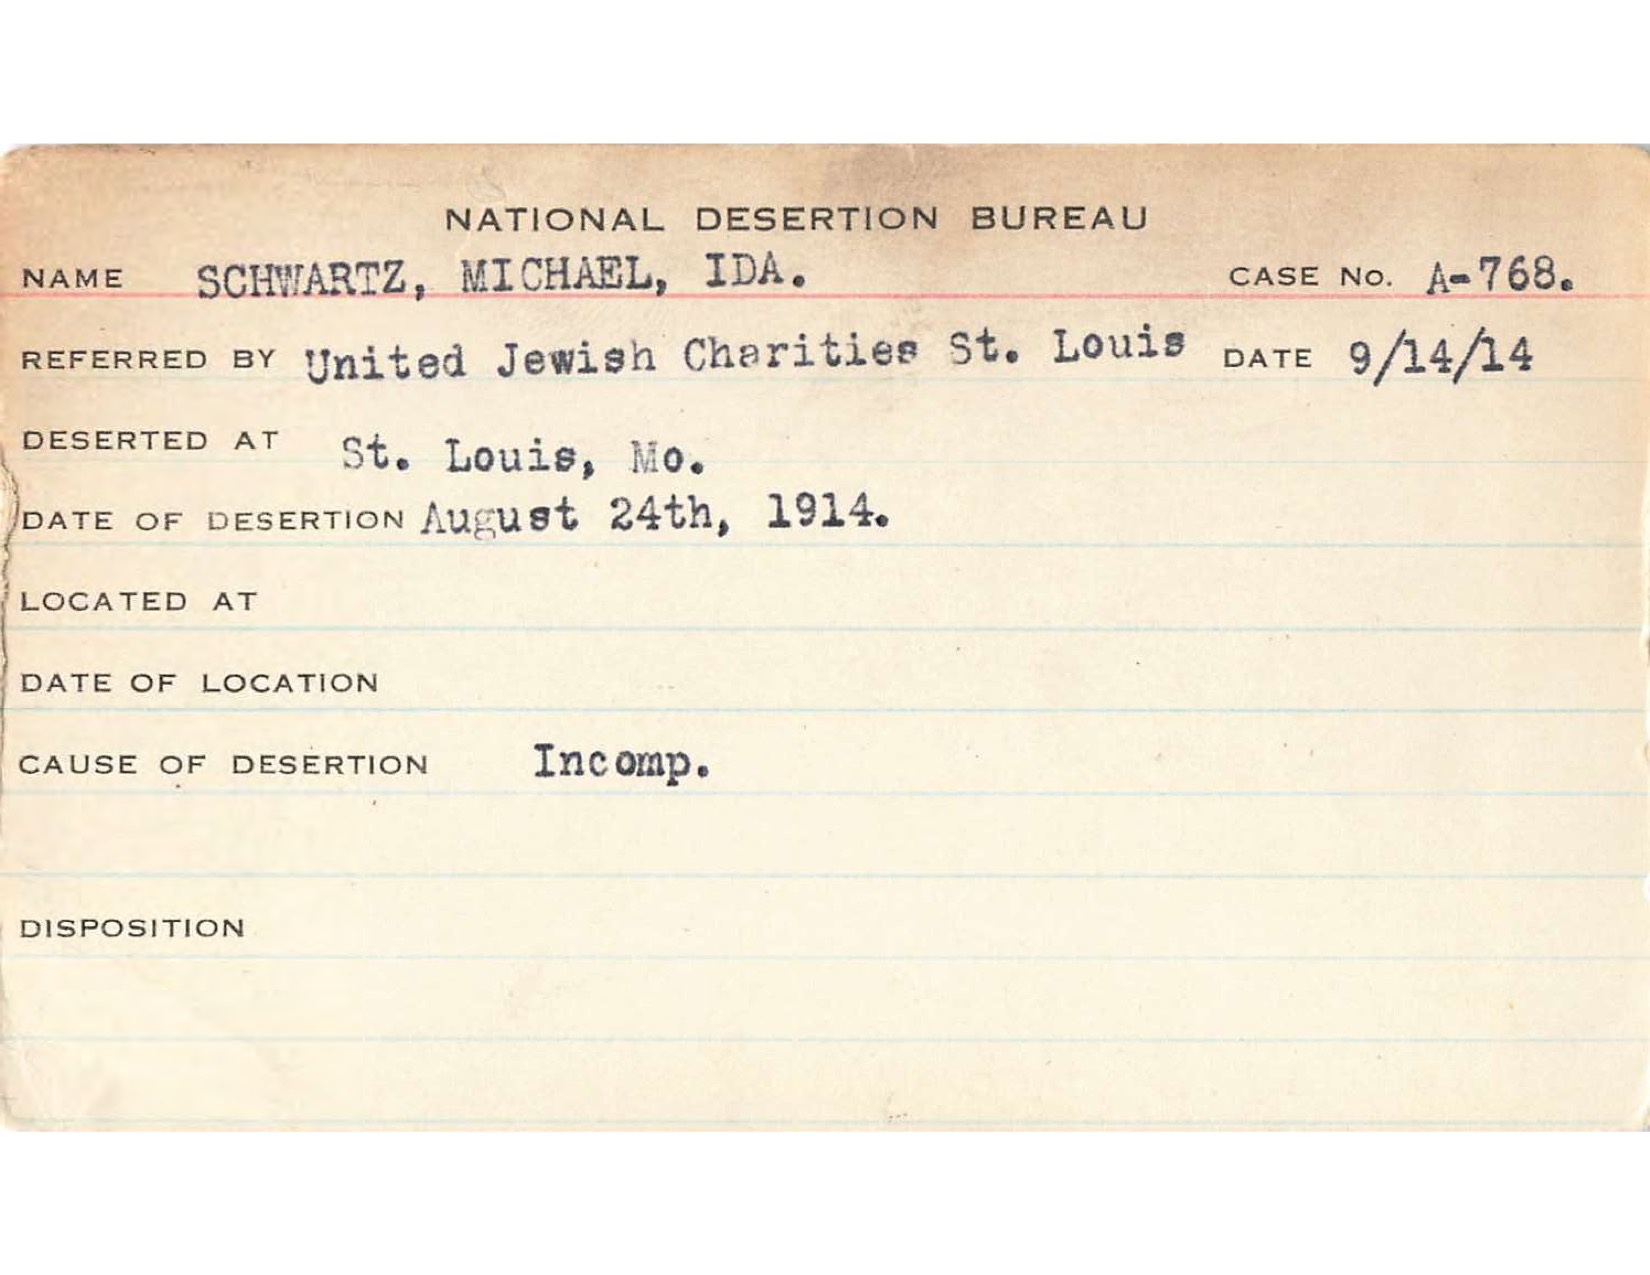 NATIONAL DESERTION BUREAU
NAME SCHWARTZ, MICHAEL, IDA. CASE No. A-768.
REFERRED BY United Jewish Charities St. Louis DATE 9/14/14
DESERTED AT St. Louis, Mo.
DATE OF DESERTION August 24th, 1914.
LOCATED AT
DATE OF LOCATION
CAUSE OF DESERTION Incomp.
DISPOSITION